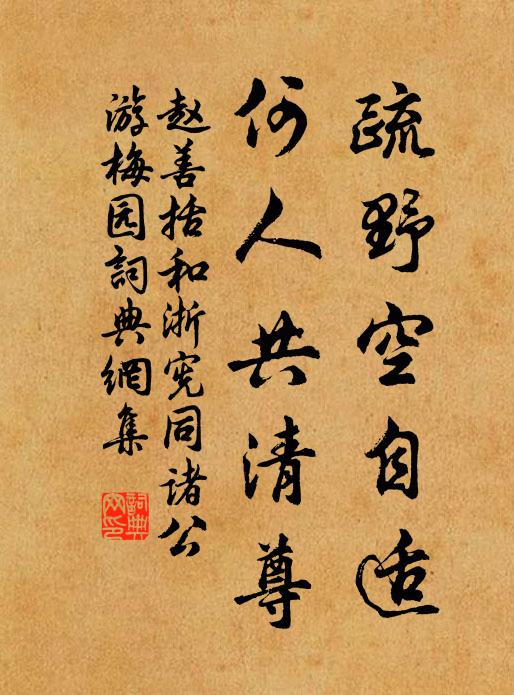 疏野空自适
何人共清尊
赵善括和浙宪同诸公
游梅园词典網集
詞典
网印